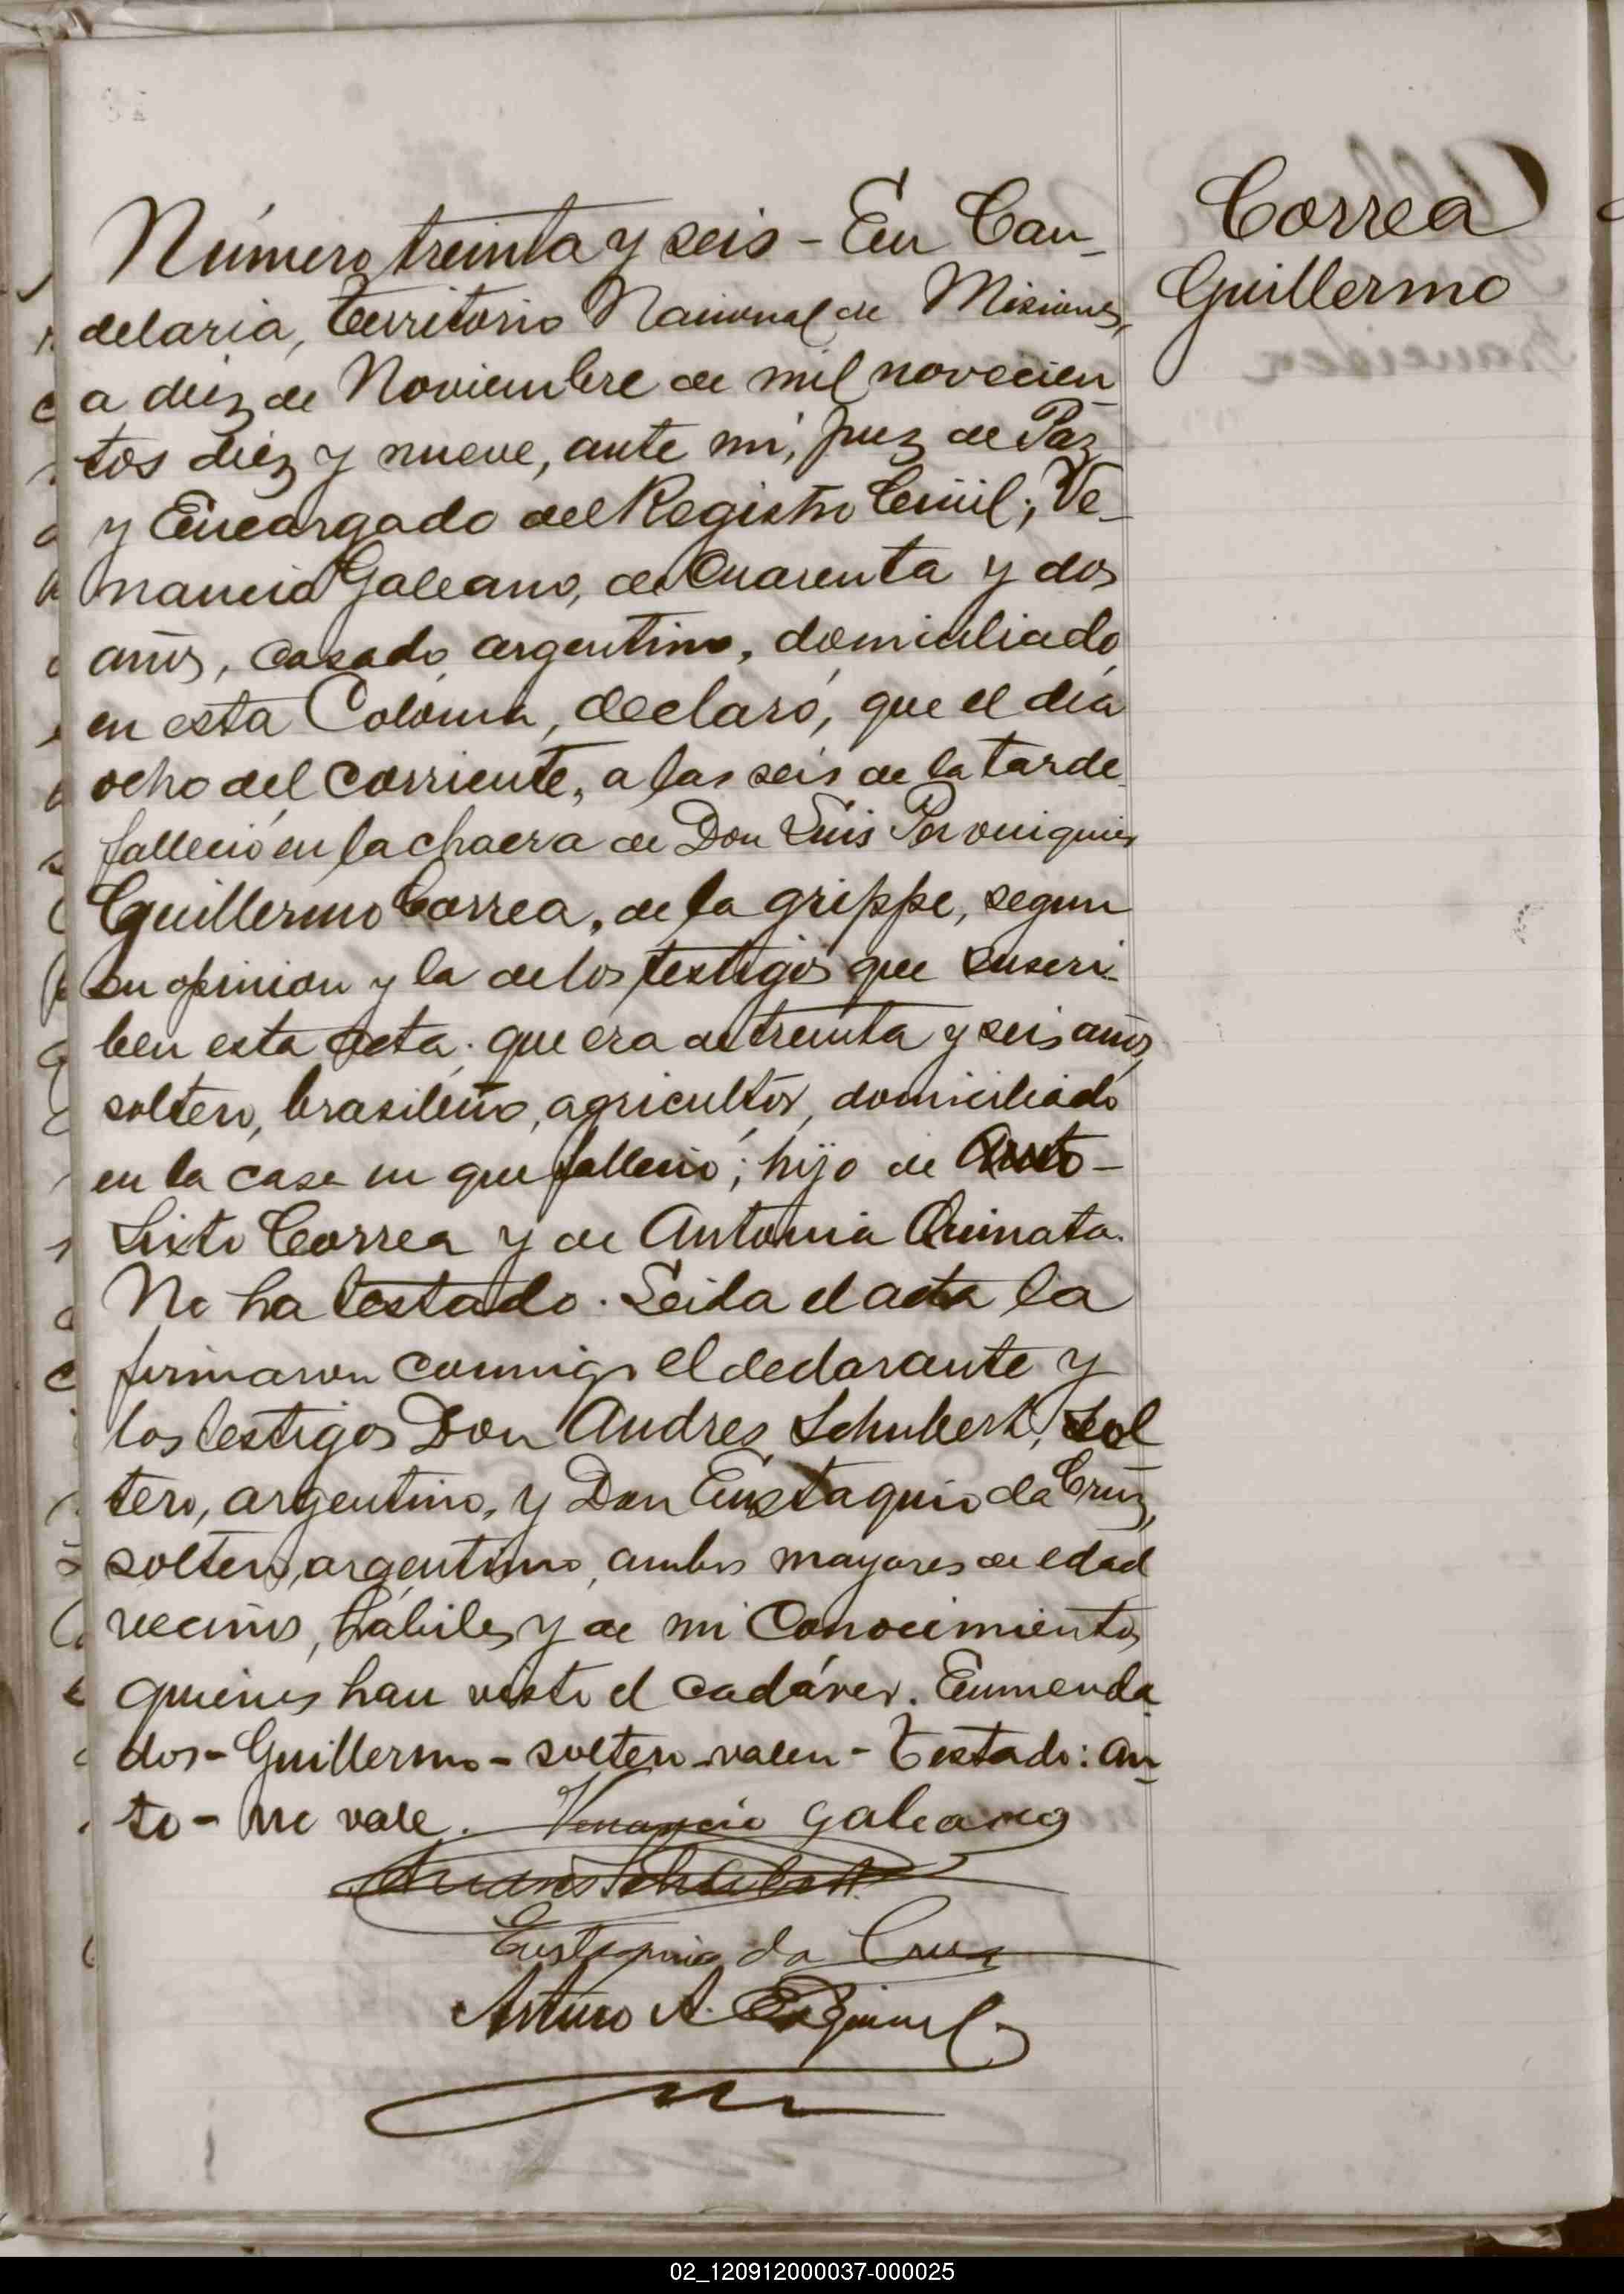 Correa
Guillermo
Número treinta y seis - En Can-
delaria, Territorio Nacional de Misiones,
a diez de Noviembre de mil novecien-
tos diez y nueve, ante mi, Juez de Paz
y Encargado del Registro Civil; Ve-
nancio Galeano, de cuarenta y dos
años, casado, argentino, domiciliado
en esta Colonia, declaró, que el día
ocho del corriente, a las seis de la tarde
falleció en la chacra de Don Luis
Guillermo Correa, de la grippe, segun
su opinion y la de los testigos que suscri-
ben esta acta. que era de treinta y seis años,
soltero, brasileño, agricultor, domiciliado
en la casa en que falleció; hijo de Anto-
Sixto Correa y de Antonia
No ha testado. Leida el acta la
firmaron conmigo el declarante y
los testigos Don Andres Schubert, sol
tero, argentino, y Don Eustaquio da Cruz,
soltero, argentino, ambos mayores de edad
vecinos, hábiles y de mi conocimiento,
quienes han visto el cadáver. Enmenda
dos - Guillermo - soltero - valen - Testado: an-
to - no vale. Venancio galeano
Eustaquio da Cruz
Arturo A.
02_120912000037-000025